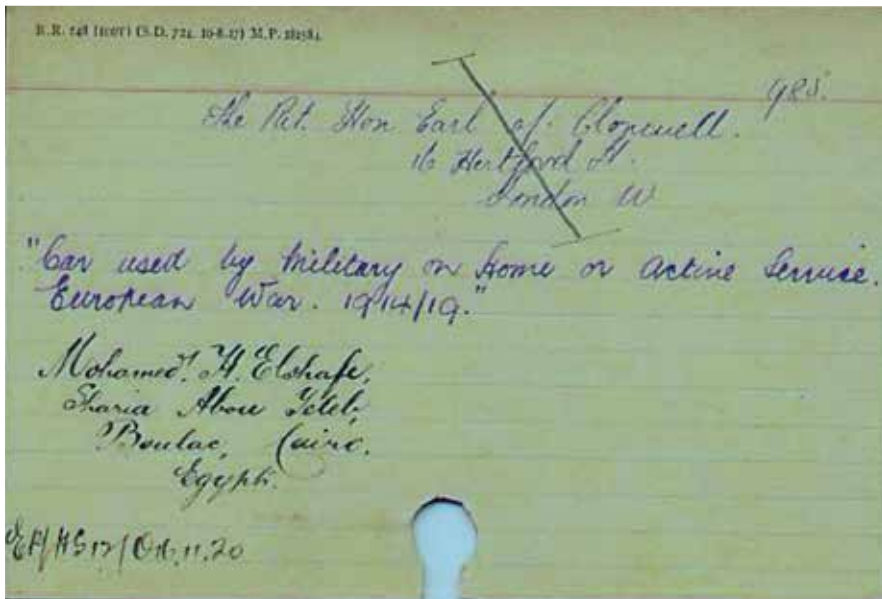 R.R. 248 (100T) (S.D. 724. 10-8-17) M.P. 282584.
985.
The Rt. Hon Earl of Clonmell.
16 Hertford St.
London W
"Car used by Military on Home or Active Service.
European War. 1914/19."
Mohamed. H. Elshafe,
Sharia Abou Teleb,
Boulac, Cairo.
Egypt.